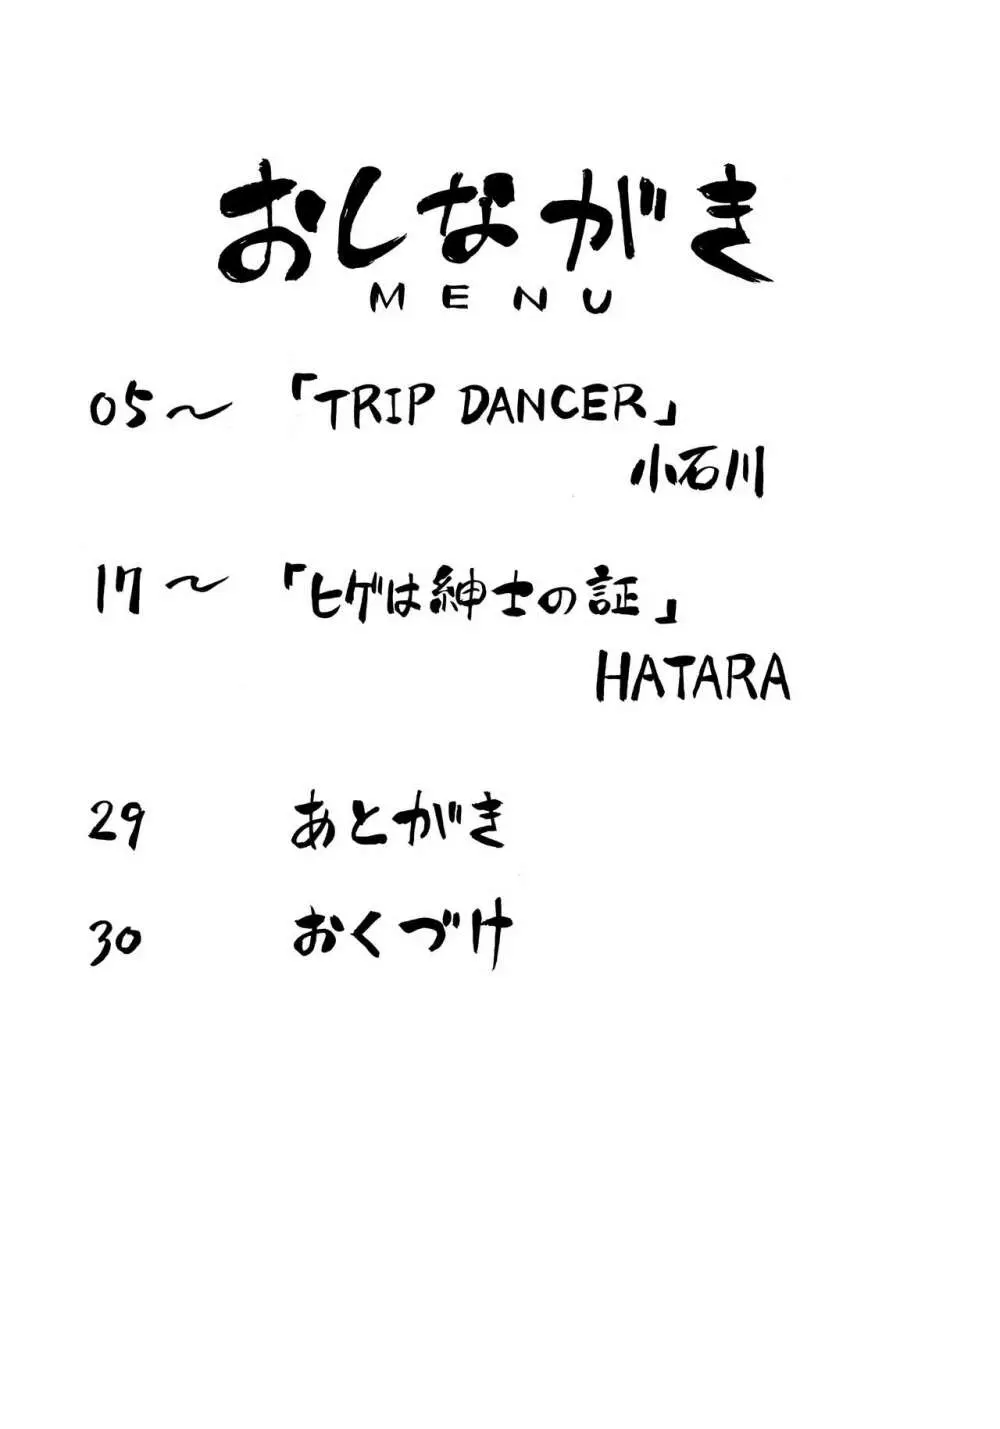 おしながき
MENU
05〜 「TRIP DANCER」
小石川
17〜 「ヒゲは紳士の証」
HATARA
29 あとがき
30 おくづけ